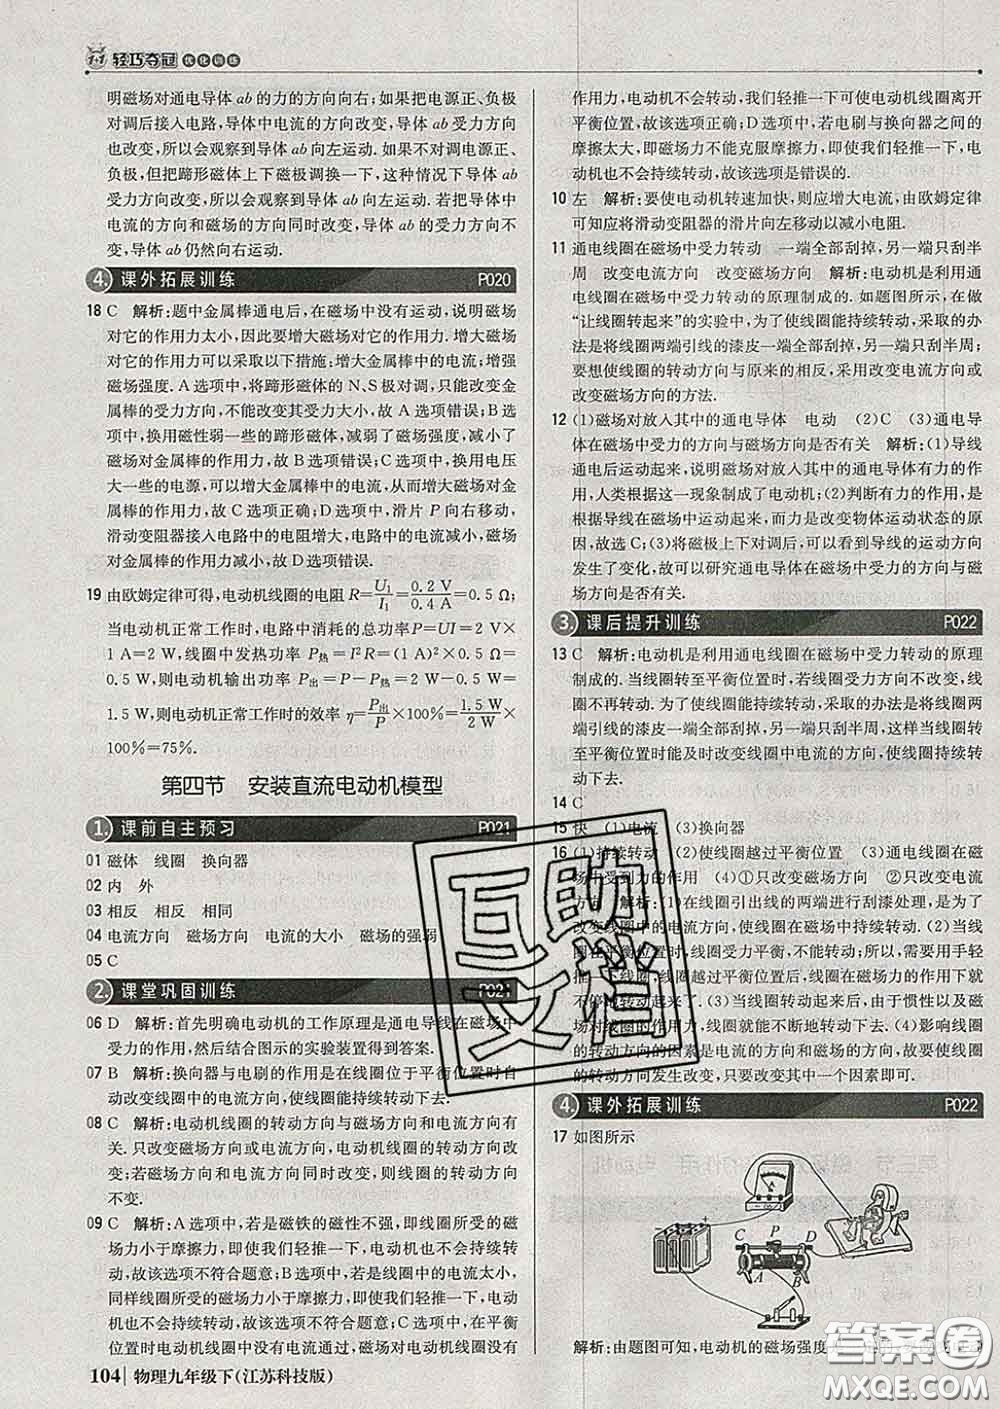 1+1 轻巧夺冠 优化训练
明磁场对通电导体 ab 的力的方向向右;如果把电源正、负极
对调后接入电路,导体中电流的方向改变,导体 ab 受力方向
也改变,所以会观察到导体 ab 向左运动.如果不对调电源正、
负极,但把蹄形磁体上下磁极调换一下,这种情况下导体 ab
受力方向改变,所以会观察到导体 ab 向左运动.若把导体中
电流的方向和磁场的方向同时改变,导体 ab 受力方向不
变,导体 ab 仍然向右运动.
4. 课外拓展训练 P020
18 C 解析:题中金属棒通电后,在磁场中没有运动,说明磁场
对它的作用力太小,因此要增大磁场对它的作用力.增大磁场
对它的作用力可以采取以下措施:增大金属棒中的电流;增强
磁场强度.A 选项中,将蹄形磁体的 N、S 极对调,只能改变金
属棒的受力方向,不能改变其受力大小,故 A 选项错误;B 选
项中,换用磁性弱一些的蹄形磁体,减弱了磁场强度,减小了
磁场对金属棒的作用力,故 B 选项错误;C 选项中,换用电压
大一些的电源,可以增大金属棒中的电流,从而增大磁场对金
属棒的作用力,故 C 选项正确;D 选项中,滑片 P 向右移动,
滑动变阻器接入电路中的电阻增大,电路中的电流减小,磁场
对金属棒的作用力减小,故 D 选项错误.
19 由欧姆定律可得,电动机线圈的电阻 R=U₁/I₁=0.2 V/0.4 A=0.5 Ω;
当电动机正常工作时,电路中消耗的总功率 P=UI=2 V×
1 A=2 W,线圈中发热功率 P热=I²R=(1 A)²×0.5 Ω=
0.5 W,则电动机输出功率 P出=P-P热=2 W-0.5 W=
1.5 W,则电动机正常工作时的效率 η=P出/P×100%=1.5 W/2 W×
100%=75%.
第四节 安装直流电动机模型
1. 课前自主预习 P021
01 磁体 线圈 换向器
02 内 外
03 相反 相反 相同
04 电流方向 磁场方向 电流的大小 磁场的强弱
05 C
2. 课堂巩固训练 P021
06 D 解析:首先明确电动机的工作原理是通电导线在磁场中
受力的作用,然后结合图示的实验装置得到答案.
07 B 解析:换向器与电刷的作用是在线圈位于平衡位置时自
动改变线圈中的电流方向,使线圈能够持续转动.
08 C 解析:电动机线圈的转动方向与磁场方向和电流方向有
关.只改变磁场方向或电流方向,能使电动机的转动方向改
变;若电流方向和磁场方向同时改变,则线圈的转动方向
不变.
09 C 解析:A 选项中,若是磁铁的磁性不强,即线圈所受的磁
场力小于摩擦力,即使我们轻推一下,电动机也不会持续转
动,故该选项不符合题意;B 选项中,若是线圈的电流太小,
同样线圈所受的磁场力小于摩擦力,即使我们轻推一下,也
不会持续转动,故该选项不符合题意;C 选项中,在平衡
位置时打开开关,通过电动机线圈,磁场对电动机线圈没有
104 物理九年级下(江苏科技版)
作用力,电动机不会转动,我们轻推一下可使电动机线圈离开
平衡位置,故该选项正确;D 选项中,若电刷与换向器之间的
摩擦太大,即磁场力不能克服摩擦力,即使我们轻推一下,电
动机也不会持续转动,故该选项是错误的.
10 左 解析:要使电动机转速加快,则应增大电流,由欧姆定律
可知应将滑动变阻器的滑片向左移动以减小电阻.
11 通电线圈在磁场中受力转动 一端全部刮掉,另一端只刮半
周 改变电流方向 改变磁场方向 解析:电动机是利用通
电线圈在磁场中受力转动的原理制成的.如题图所示,在做
“让线圈转起来”的实验中,为了使线圈能持续转动,采取的办
法是将线圈两端引线的漆皮一端全部刮掉,另一端只刮半周;
要想使线圈的转动方向与原来的相反,采用改变电流方向或
磁场方向的方法.
12 (1)磁场对放入其中的通电导体 电动 (2)C (3)通电导
体在磁场中受力的方向与磁场方向是否有关 解析:(1)导线
通电后运动起来,说明磁场对放入其中的通电导体有力的作
用,人类根据这一现象制成了电动机;(2)判断有力的作用,是
根据导线在磁场中运动起来,而力是改变物体运动状态的原因,
故选 C;(3)将磁极上下对调后,可以看到导线的运动方向
发生了变化,故可以研究通电导体在磁场中受力的方向与磁
场方向是否有关.
3. 课后提升训练 P022
13 C 解析:电动机是利用通电线圈在磁场中受力转动的原理
制成的.当线圈转到平衡位置时,若电流方向不改变,则线
圈不再转动.为了使线圈能持续转动,采取的办法是将线圈两
端引线的漆皮一端全部刮掉,另一端只刮半周,这样当线圈转
至平衡位置时能及时改变线圈中电流的方向,使线圈持续转
动下去.
14 C
15 快 (1)电流 (3)换向器
16 (1)持续转动 (2)使线圈越过平衡位置 (3)通电线圈在磁
场中受到力的作用 (4)①只改变磁场方向 ②只改变电流
方向 解析:(1)在线圈引出线的两端进行刮漆处理,是为了
改变线圈中的电流方向,使线圈能够持续转动下去.(2)当线
圈在平衡位置时,线圈受力平衡,不能转动;所以,需要用手轻
推一下.线圈越过平衡位置后,线圈在磁场力的作用下就
不停地转动下去.(3)当线圈转动起来后,由于惯性以及磁
场对线圈的作用力,线圈就能不断地转动下去.(4)影响线圈
的转动方向的因素是电流的方向和磁场的方向,故要使线圈
的转动方向发生改变,只要改变其中一个因素即可.
4. 课外拓展训练 P022
17 如图所示
C P D
A B
解析:由题图可知,电动机的磁场强度
互助文档
答案圈
MXQE.COM